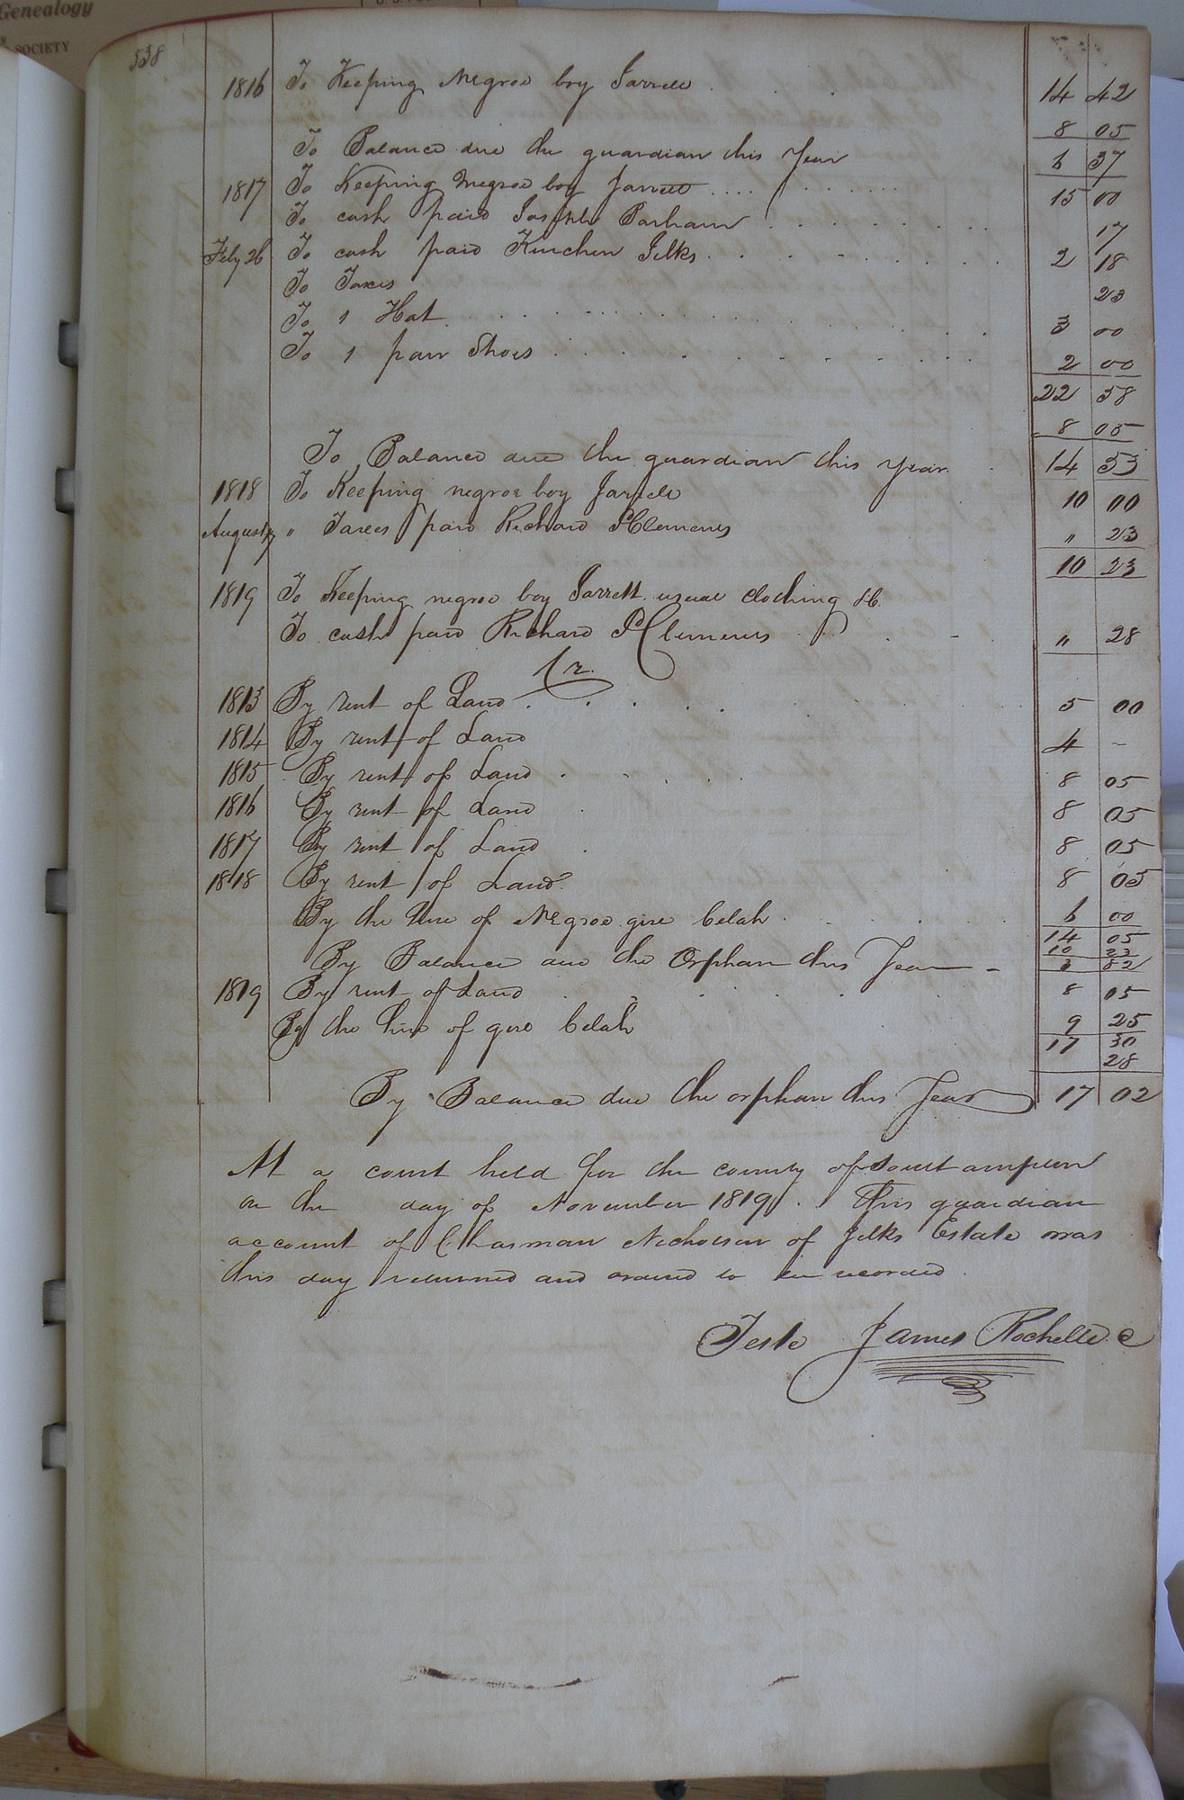 Genealogy
SOCIETY
538
1816 To Keeping Negroe boy Jarrell 14 42
8 05
To Balance due the guardian this Year 6 37
1817 To Keeping Negroe boy Jarrell 15 00
To cash paid Joseph Parham 17
Feby 26 To cash paid Kinchen Jelks 2 18
To Taxes 23
To 1 Hat 3 00
To 1 pair Shoes 2 00
22 58
8 05
To Balance due the guardian this year 14 53
1818 To Keeping negroe boy Jarrell 10 00
August " Taxes paid Richard P Clements " 23
10 23
1819 To Keeping negroe boy Jarrett usual clothing &c.
To cash paid Richard P Clements " 28
Cr.
1813 By rent of Land 5 00
1814 By rent of Land 4 -
1815 By rent of Land 8 05
1816 By rent of Land 8 05
1817 By rent of Land 8 05
1818 By rent of Land 8 05
By the hire of Negroe girl Celah 6 00
14 05
10 23
By Balance due the Orphan this Year 3 82
1819 By rent of Land 8 05
By the hire of girl Celah 9 25
17 30
28
By Balance due the orphan this Year 17 02
At a court held for the county of Southampton
on the day of November 1819. This guardian
account of Charman Nicholson of Jelks Estate was
this day returned and ordered to be recorded
Teste James Rochelle C